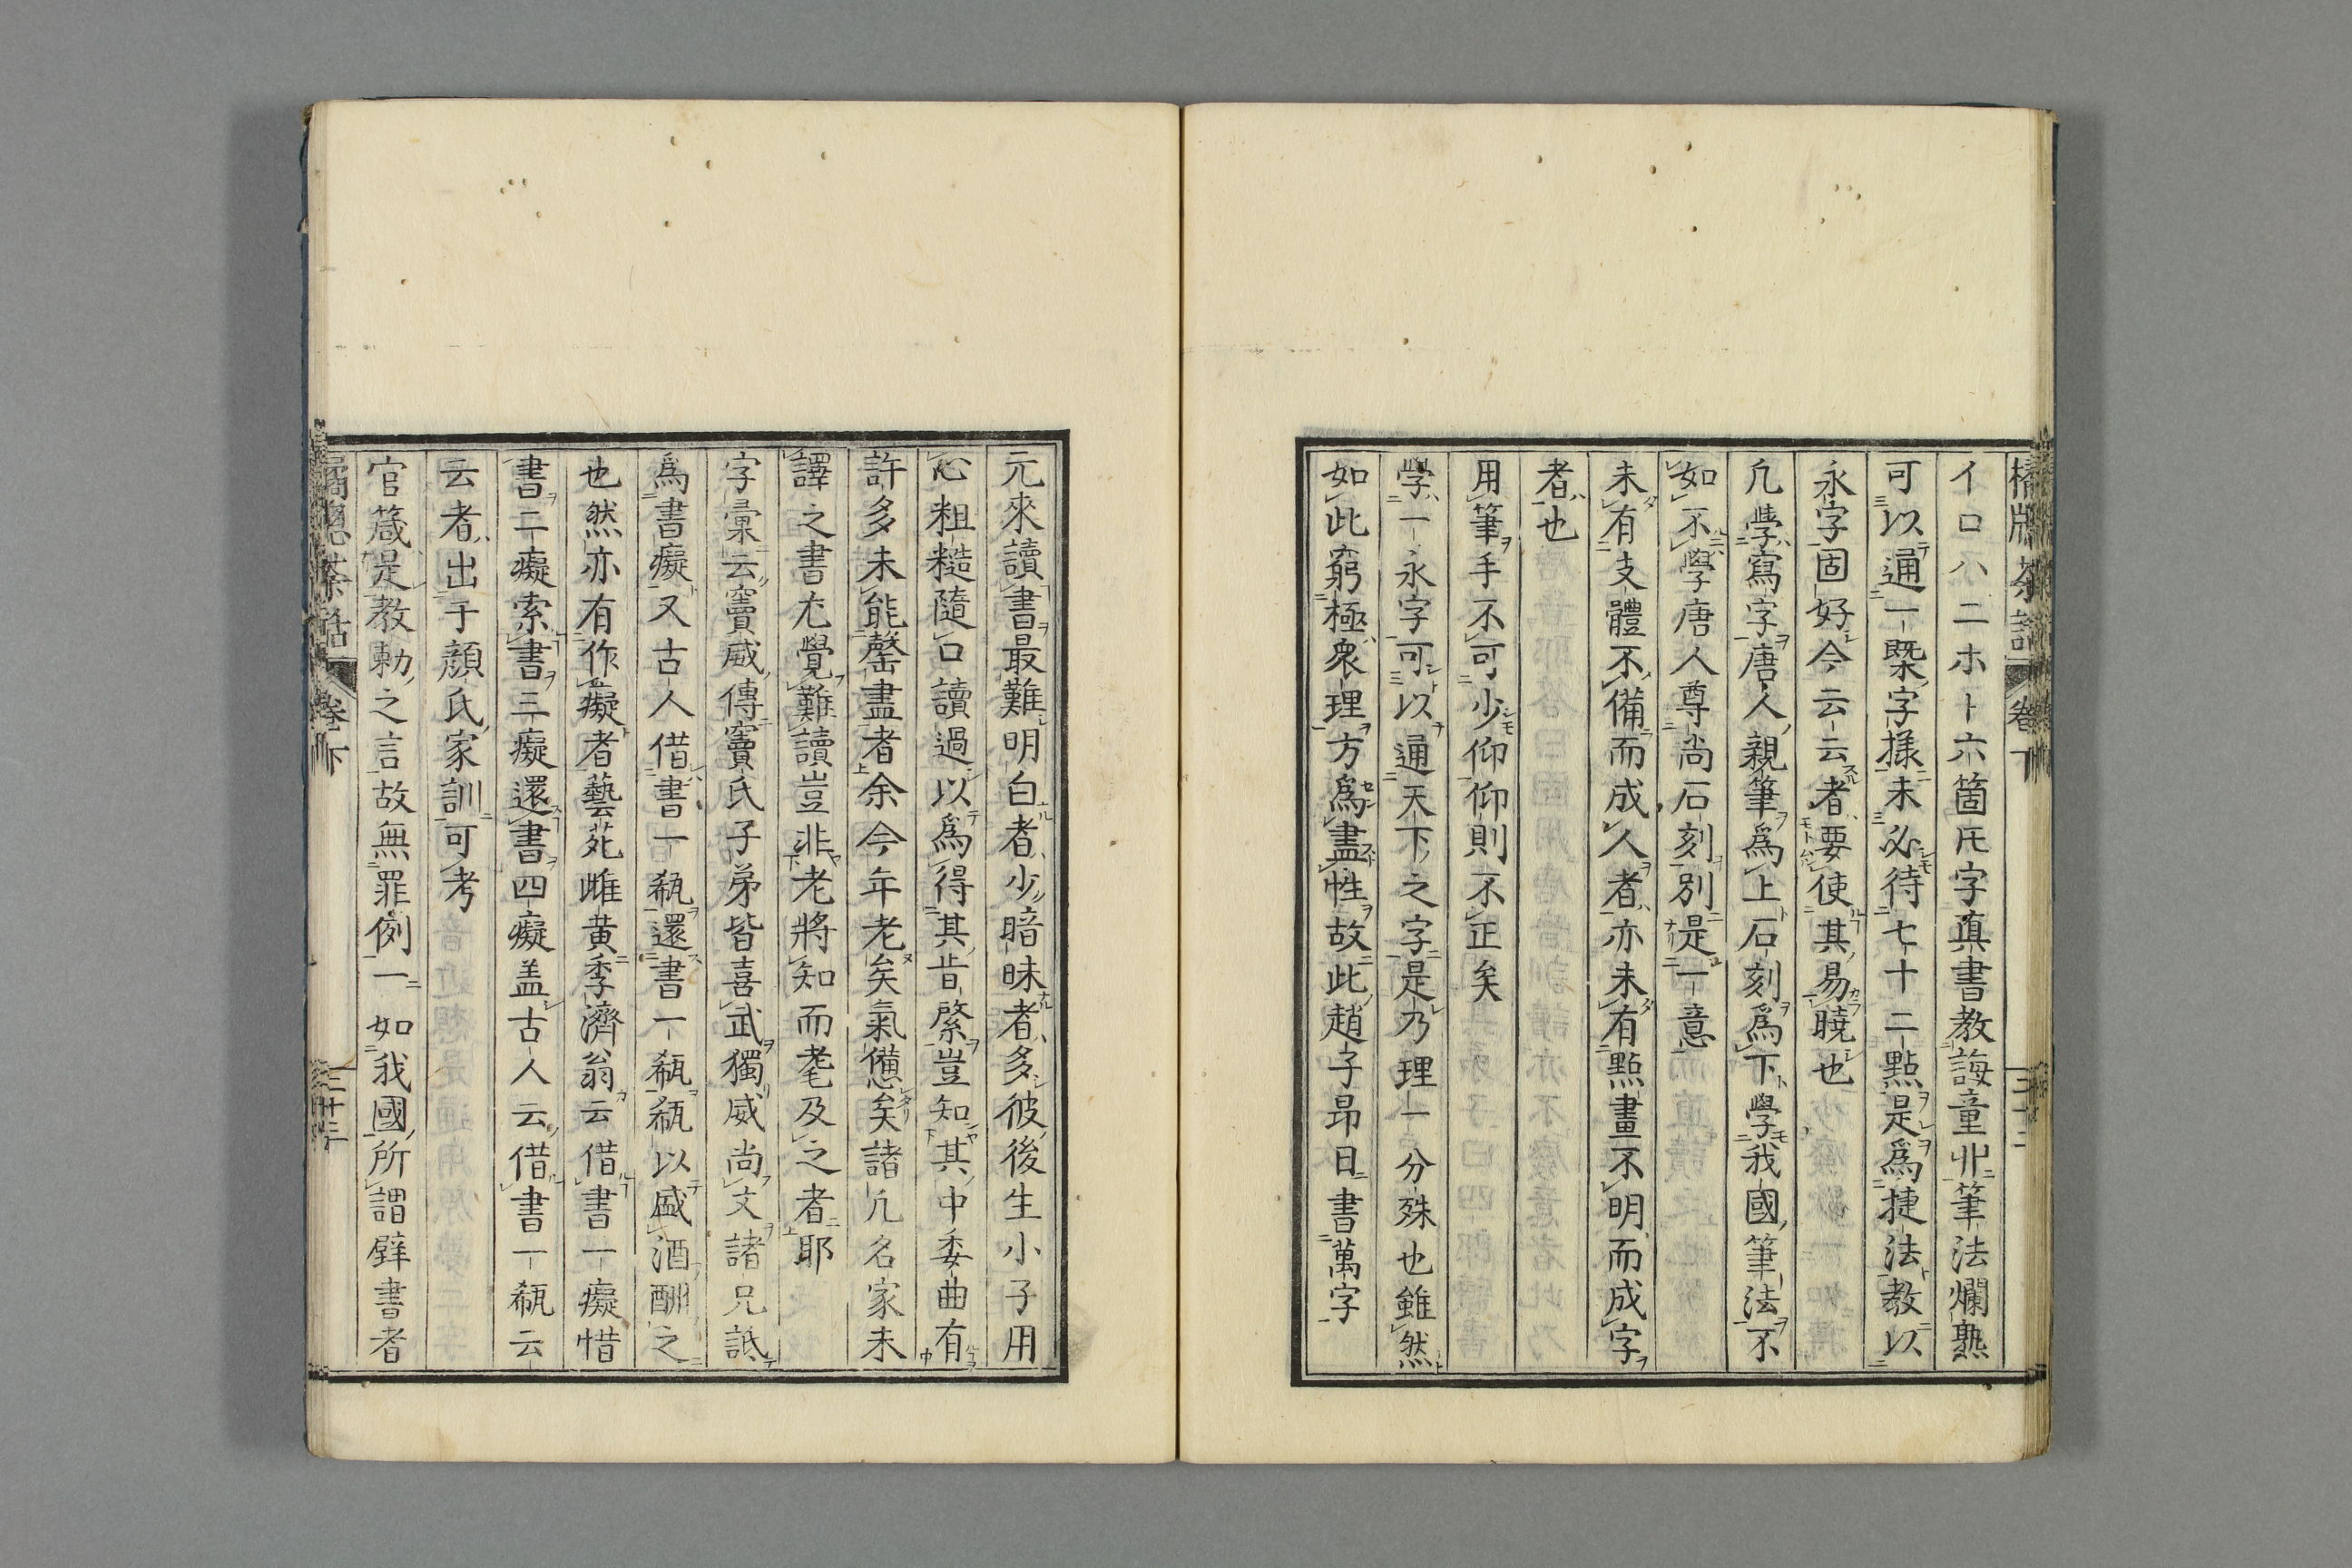 橘牕茶話 卷下 三十二
イロハニホト六箇字眞書教誨童丱筆法爛熟
可以通一槩字様未必待七十二㸃是爲捷法教以
永字固好今云云者要使其易曉也
凢學寫字唐人親筆爲上石刻爲下學我國筆法不
如不學唐人尊尚石刻別是一意
未有支體不備而成人者亦未有㸃畫不明而成字
者也
用筆手不可少仰仰則不正矣
學一永字可以通天下之字是乃理一分殊也雖然
如此窮極衆理方爲盡性故此趙子昂日書萬字
元來讀書最難明白者少暗昧者多彼後生小子用
心粗糙隨口讀過以爲得其㫖綮豈知其中委曲有
許多未能罄盡者余今年老矣氣憊矣諸凢名家未
譯之書尤覺難讀豈非老將知而耄及之者耶
字彙云竇威傳竇氏子弟皆喜武獨威尚文諸兄詆
爲書癡又古人借書一瓻還書一瓻瓻以盛酒酬之
也然亦有作癡者藝苑雌黄季濟翁云借書一癡惜
書二癡索書三癡還書四癡盖古人云借書一瓻云
云者出于顔氏家訓可考
官箴是教勅之言故無罪例一如我國所謂壁書者
橘牕茶話 卷下 三十三